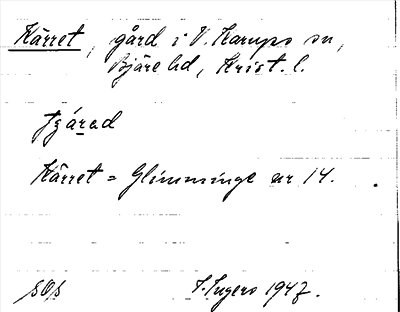 Kärret, gård i V. Karups sn,
Bjäre hd, Krist. l.
Kärret = Glimminge nr 14.
S. Ingers 1947.